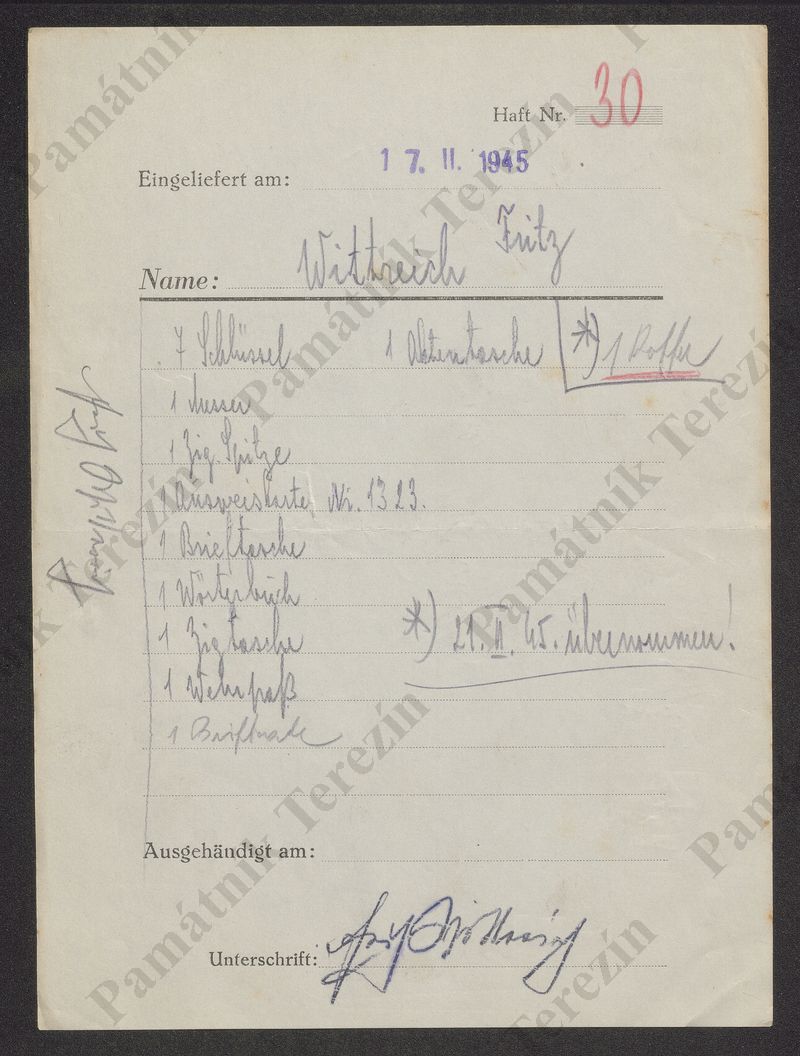 Haft Nr. 30
Eingeliefert am: 17. II. 1945
Name: Wittreich Fritz
7 Schlüssel 1 Aktentasche *) 1 Koffer
1 Messer
1 Zig. Spitze
1 Ausweiskarte Nr. 1323.
1 Brieftasche
1 Wörterbuch
1 Zigtasche *) 21. II. 45. übernommen!
1 Wehrpaß
1
Ausgehändigt am:
Unterschrift: Fritz Wittreich
Památník Terezín
Památník Terezín
Památník Terezín
Památník Terezín
Památník Terezín